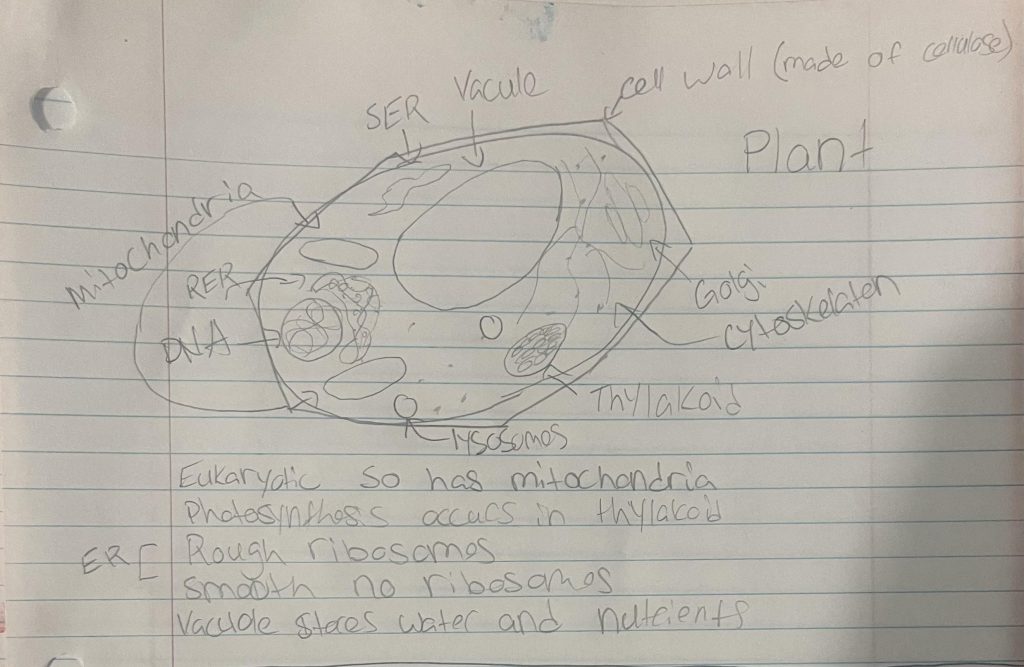 cell wall (made of cellulose)
SER
Vacule
Plant
Mitochondria
RER
Golgi
DNA
Cytoskelaten
Thylakoid
lysosomos
Eukaryotic so has mitochondria
Photosynthosis occurs in thylakoid
ER[
Rough ribosomos
smooth no ribosomos
Vacuole stores water and nutrients